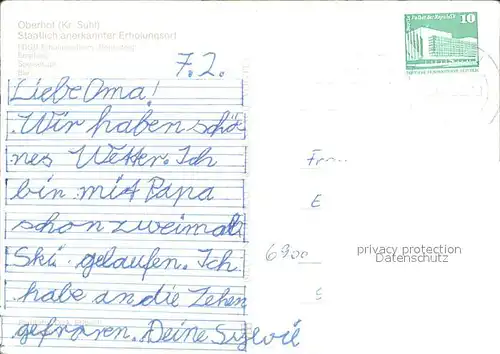 Oberhof (Kr. Suhl)
Staatlich anerkannter Erholungsort
7.2.
Liebe Oma!
Wir haben schö-
nes Wetter. Ich
bin mit Papa
schon zweimal
Ski gelaufen. Ich
habe an die Zehen
gefroren. Deine Sylvie
10
Palast der Republik
Frn..
E
6900
privacy protection
Datenschutz